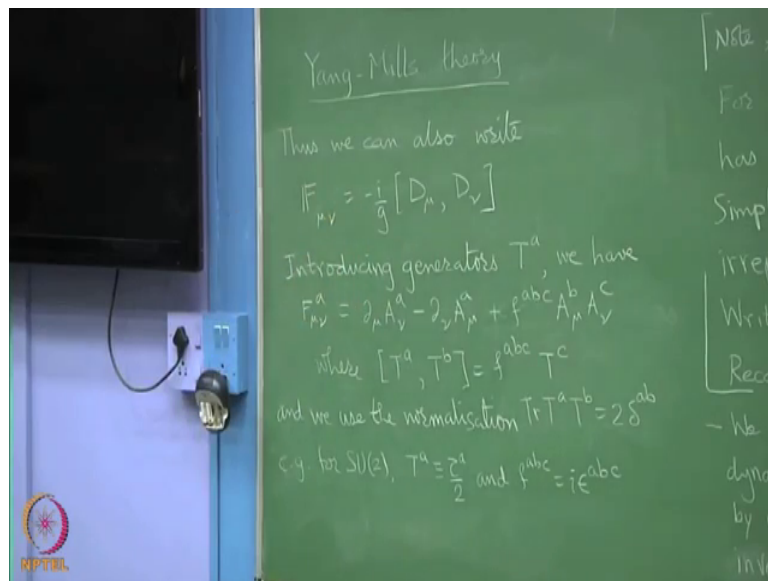 Yang-Mills theory
Thus we can also write
𝔽_μν = -i/g [D_μ, D_ν]
Introducing generators T^a, we have
F^a_μν = ∂_μ A^a_ν - ∂_ν A^a_μ + f^abc A^b_μ A^c_ν
where [T^a, T^b] = f^abc T^c
and we use the normalisation Tr T^a T^b = 2δ^ab
e.g. for SU(2), T^a ≡ τ^a/2 and f^abc = iϵ^abc
[Note
For
has
Simpl
irrep
Writ
Reca
- We
dyna
by
inva
NPTEL